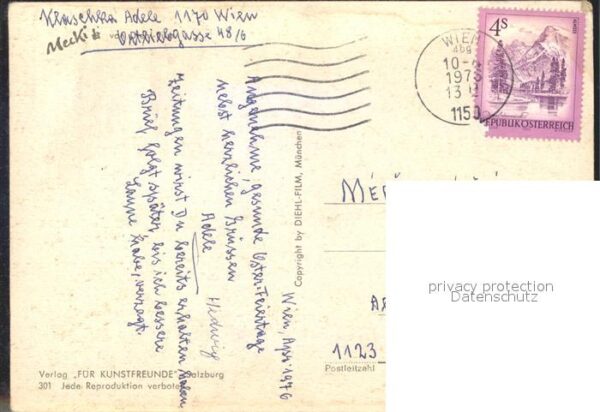 Klaschka Adele 1170 Wien
Mecki
Ortliebgasse 48/6
WIEN
10-
1976
13
1150
4s
REPUBLIK ÖSTERREICH
Wien, April 1976
Angenehme, gesunde Oster-Feiertage
nebst herzlichen Grüssen
Adele
Hedwig
Zeitungen wirst Du bereits erhalten haben,
Brief folgt später, bis ich bessere
Laune habe, verzagt.
Copyright by DIEHL-FILM, München
1123
Postleitzahl
privacy protection
Datenschutz
Verlag „FÜR KUNSTFREUNDE" Salzburg
301 Jede Reproduktion verboten